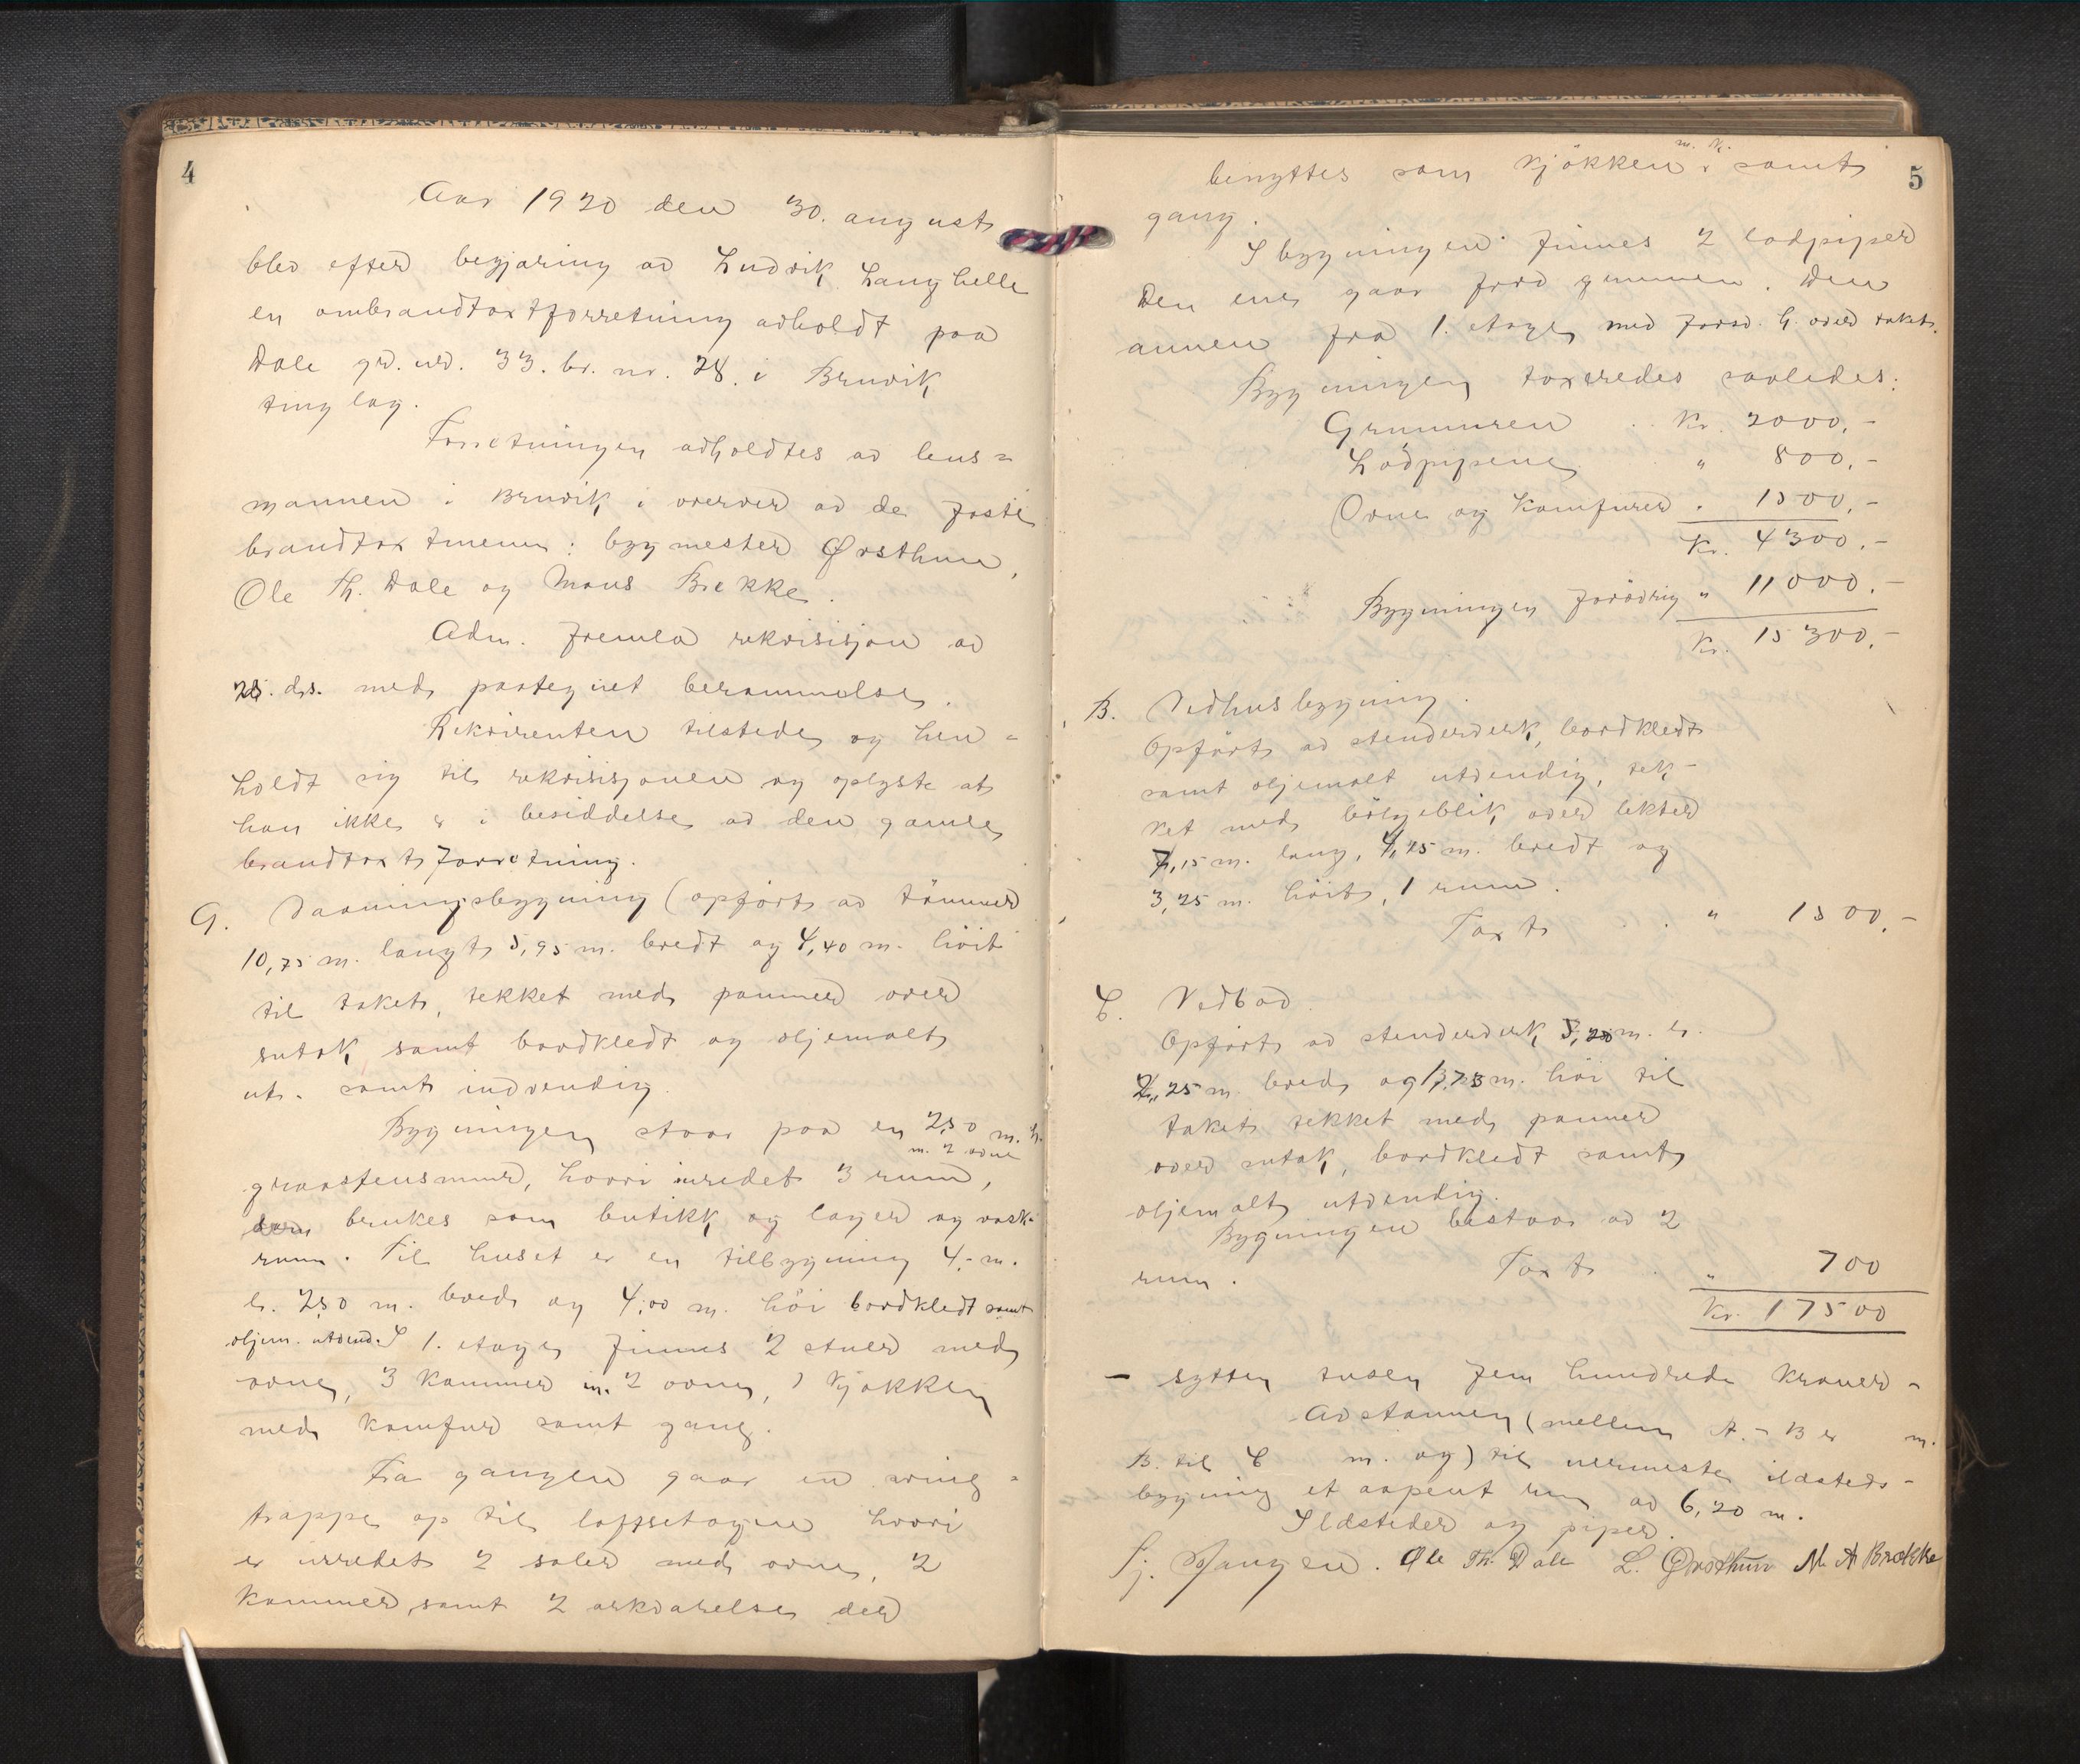 4
Aar 1920 den 30. august
blev efter begjæring av Ludvik Langhelle
en ombrandtaxtforretning avholdt paa
Dale gr. nr. 33. br. nr. 28. i Bruvik
tinglag.
Forretningen avholdtes av lens=
mannen i Bruvik i overvær av de faste
brandtaxtmenn: bygmester Ørsthun,
Ole Th. Dale og Mons Brekke.
Adm. fremla rekvisisjon av
28. ds. med paategnet berammelse.
Rekvirenten tilstede og hen=
holdt sig til rekvisisjonen og oplyste at
han ikke er i besiddelse av den gamle
brandtaxtforretning.
A. Vaaningsbygning (opført av tømmer
10,75 m. langt 5,95 m. bredt og 4,40 m. høit
til taket, tekket med panner over
sutak samt bordkledt og oljemalt
ut- samt indvendig.
Bygningen staar paa en 2,50 m. h.
m. 2 ovne
graastensmur, hvori inredet 3 rum,
som brukes som butikk og lager og vask-
rum. Til huset er en tilbygning 4,- m.
l. 2,50 m. bred og 4,00 m. høi bordkledt samt
oljem. utvend. I 1. etage finnes 2 stuer med
ovne, 3 kammer m. 2 ovne, 1 kjøkken
med komfur samt gang.
Fra gangen gaar en sving=
trappe op til loftsetagen hvori
er inredet 2 saler med ovne, 2
kammer, samt 2 arkværelse der
5
m. k.
benyttes som kjøkken samt
gang.
I bygningen finnes 2 lodpiper
Den ene gaar fra grunnen. Den
annen fra 1. etage med forsv. h. over taket.
Bygningen taxeredes saaledes:
Grunmuren . . Kr. 2000,-
Lodpipene " 800,-
Ovne og Komfurer " 1500,-
Kr. 4300,-
Bygningen forøvrig " 11000,-
Kr. 15300,-
B. Vedhusbygning.
Opført av stenderverk, bordkledt
samt oljemalt utvendig, tek-
ket med bølgeblik over lekter
7,15 m. lang, 4,25 m. bredt og
3,25 m. høit, 1 rum.
Taxt . . " 1500,-
C. Vedbod
Opført av stenderverk 5,20 m. l.
2,25 m. bred og m. høi til
taket tekket med panner
over sutak, bordkledt samt
oljemalt utvendig.
Bygningen bestaar av 2
rum. Taxt . " 700
Kr. 17500
- sytten tusen fem hundrede kroner -
Avstannen (mellem A. - B er m.
B. til C m. og) til nermeste ildsteds-
bygning et aapent rum av 6,20 m.
Ildsteder og piper.
Ole Th. Dale L. Ørsthun M A Brekke